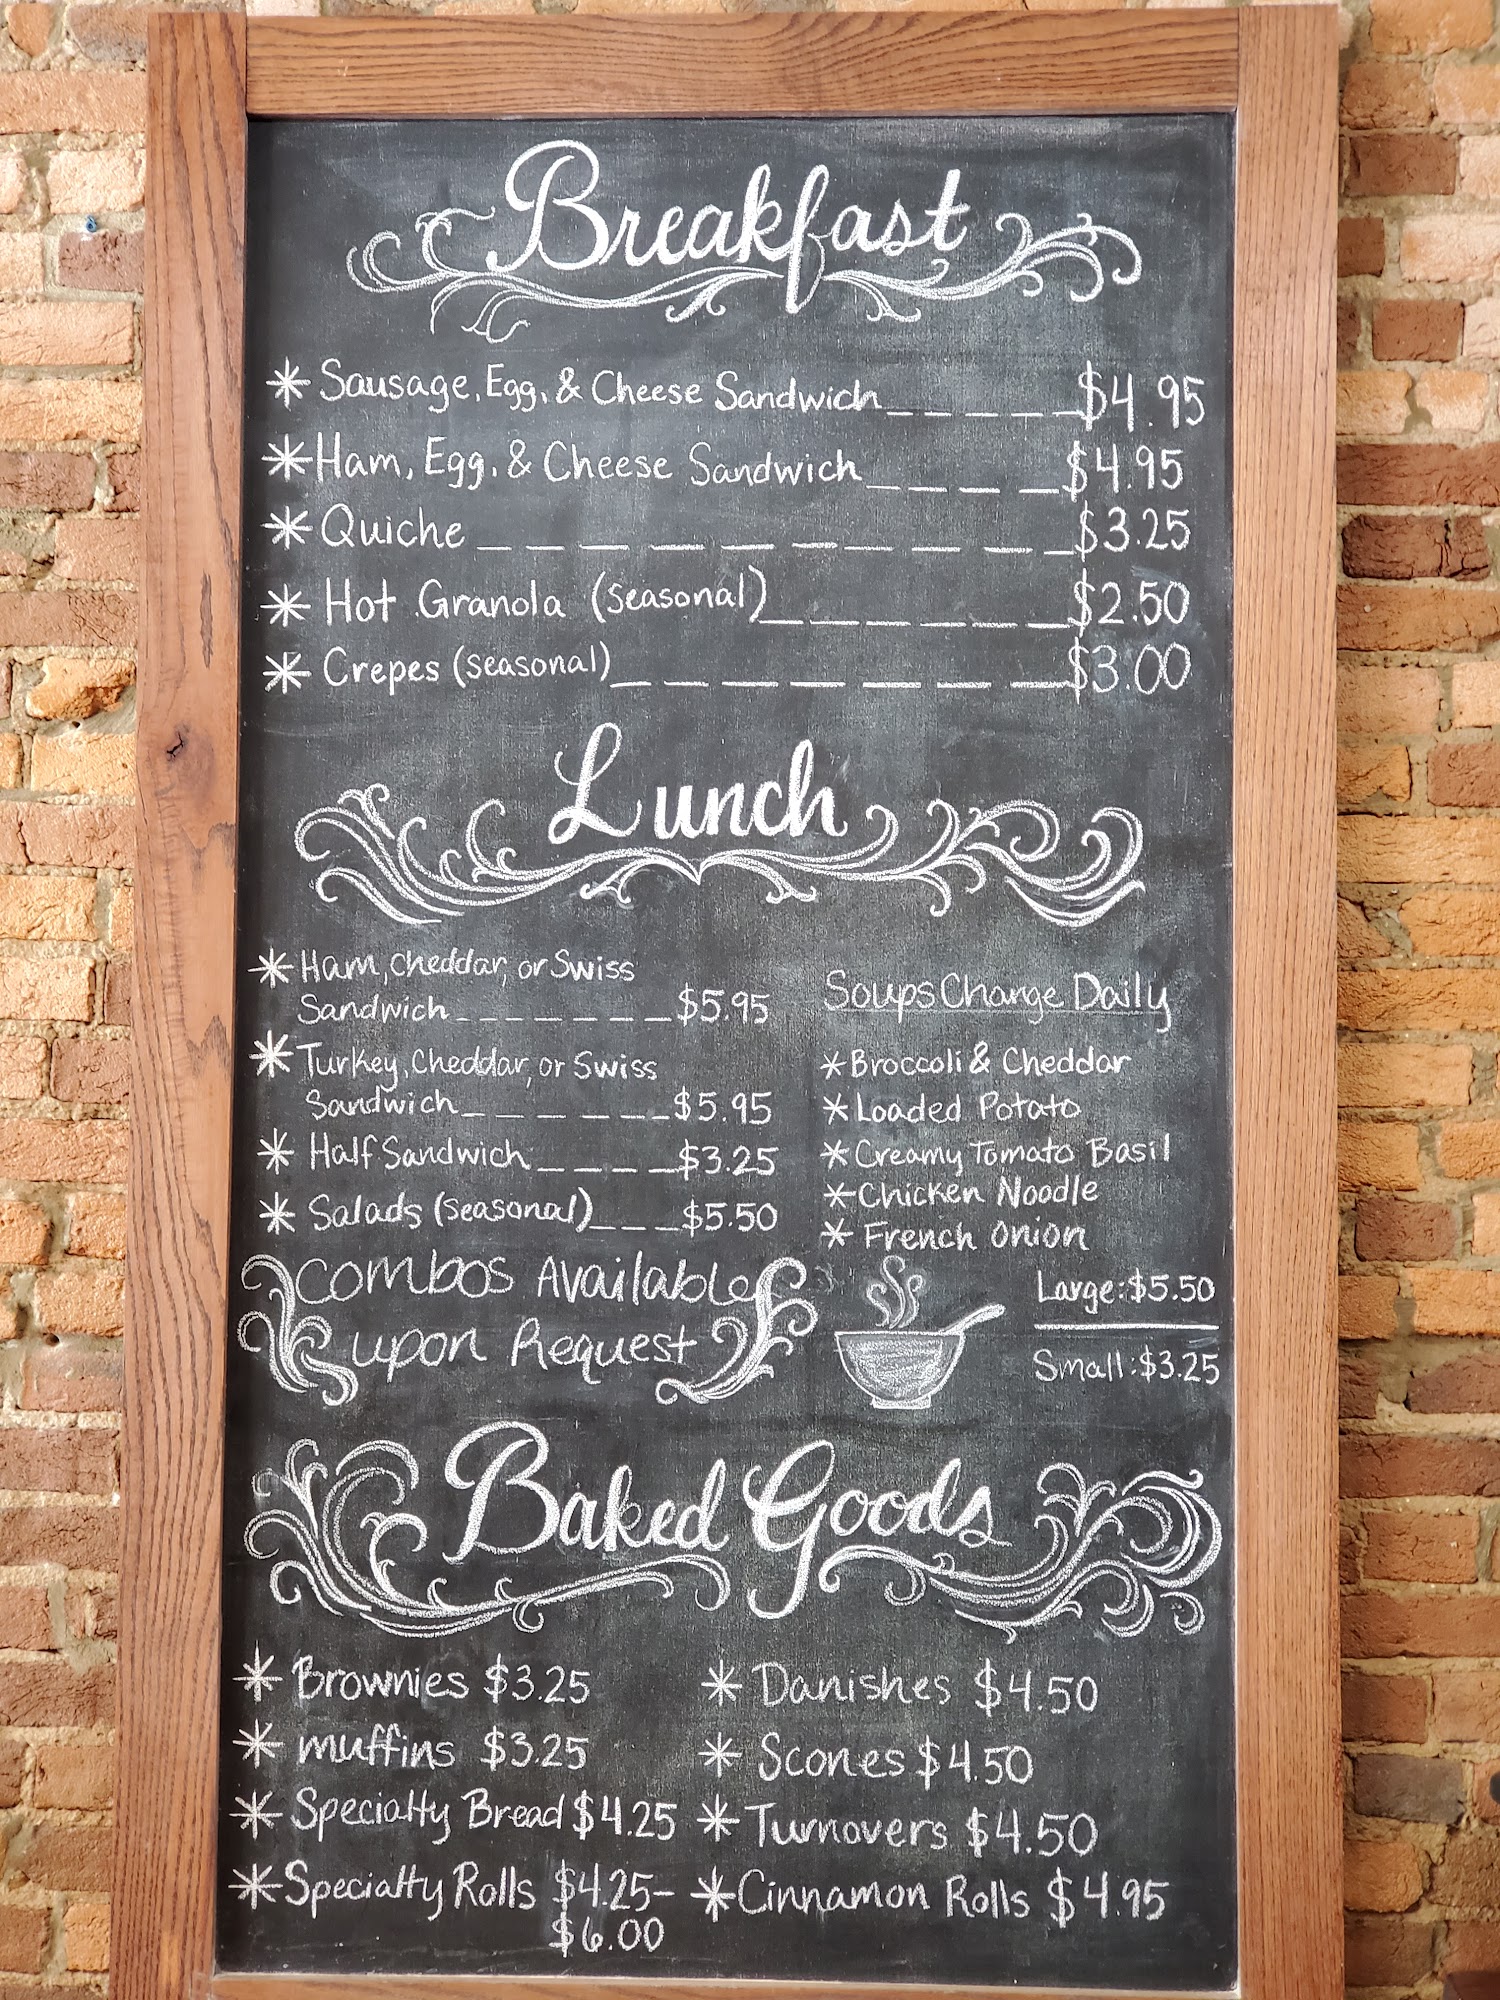 Breakfast
* Sausage, Egg, & Cheese Sandwich _ _ _ _ _ $4.95
* Ham, Egg, & Cheese Sandwich _ _ _ _ $4.95
* Quiche _ _ _ _ _ _ _ _ _ $3.25
* Hot Granola (seasonal) _ _ _ _ _ _ _ $2.50
* Crepes (seasonal) _ _ _ _ _ _ _ $3.00
Lunch
* Ham, Cheddar, or Swiss
Sandwich _ _ _ _ _ _ _ $5.95
* Turkey, Cheddar, or Swiss
Sandwich _ _ _ _ _ _ _ $5.95
* Half Sandwich _ _ _ _ _ $3.25
* Salads (seasonal) _ _ _ $5.50
Combos Available
upon Request
Soups Change Daily
* Broccoli & Cheddar
* Loaded Potato
* Creamy Tomato Basil
* Chicken Noodle
* French Onion
Large: $5.50
Small: $3.25
Baked Goods
* Brownies $3.25
* muffins $3.25
* Specialty Bread $4.25
* Specialty Rolls $4.25-
$6.00
* Danishes $4.50
* Scones $4.50
* Turnovers $4.50
* Cinnamon Rolls $4.95